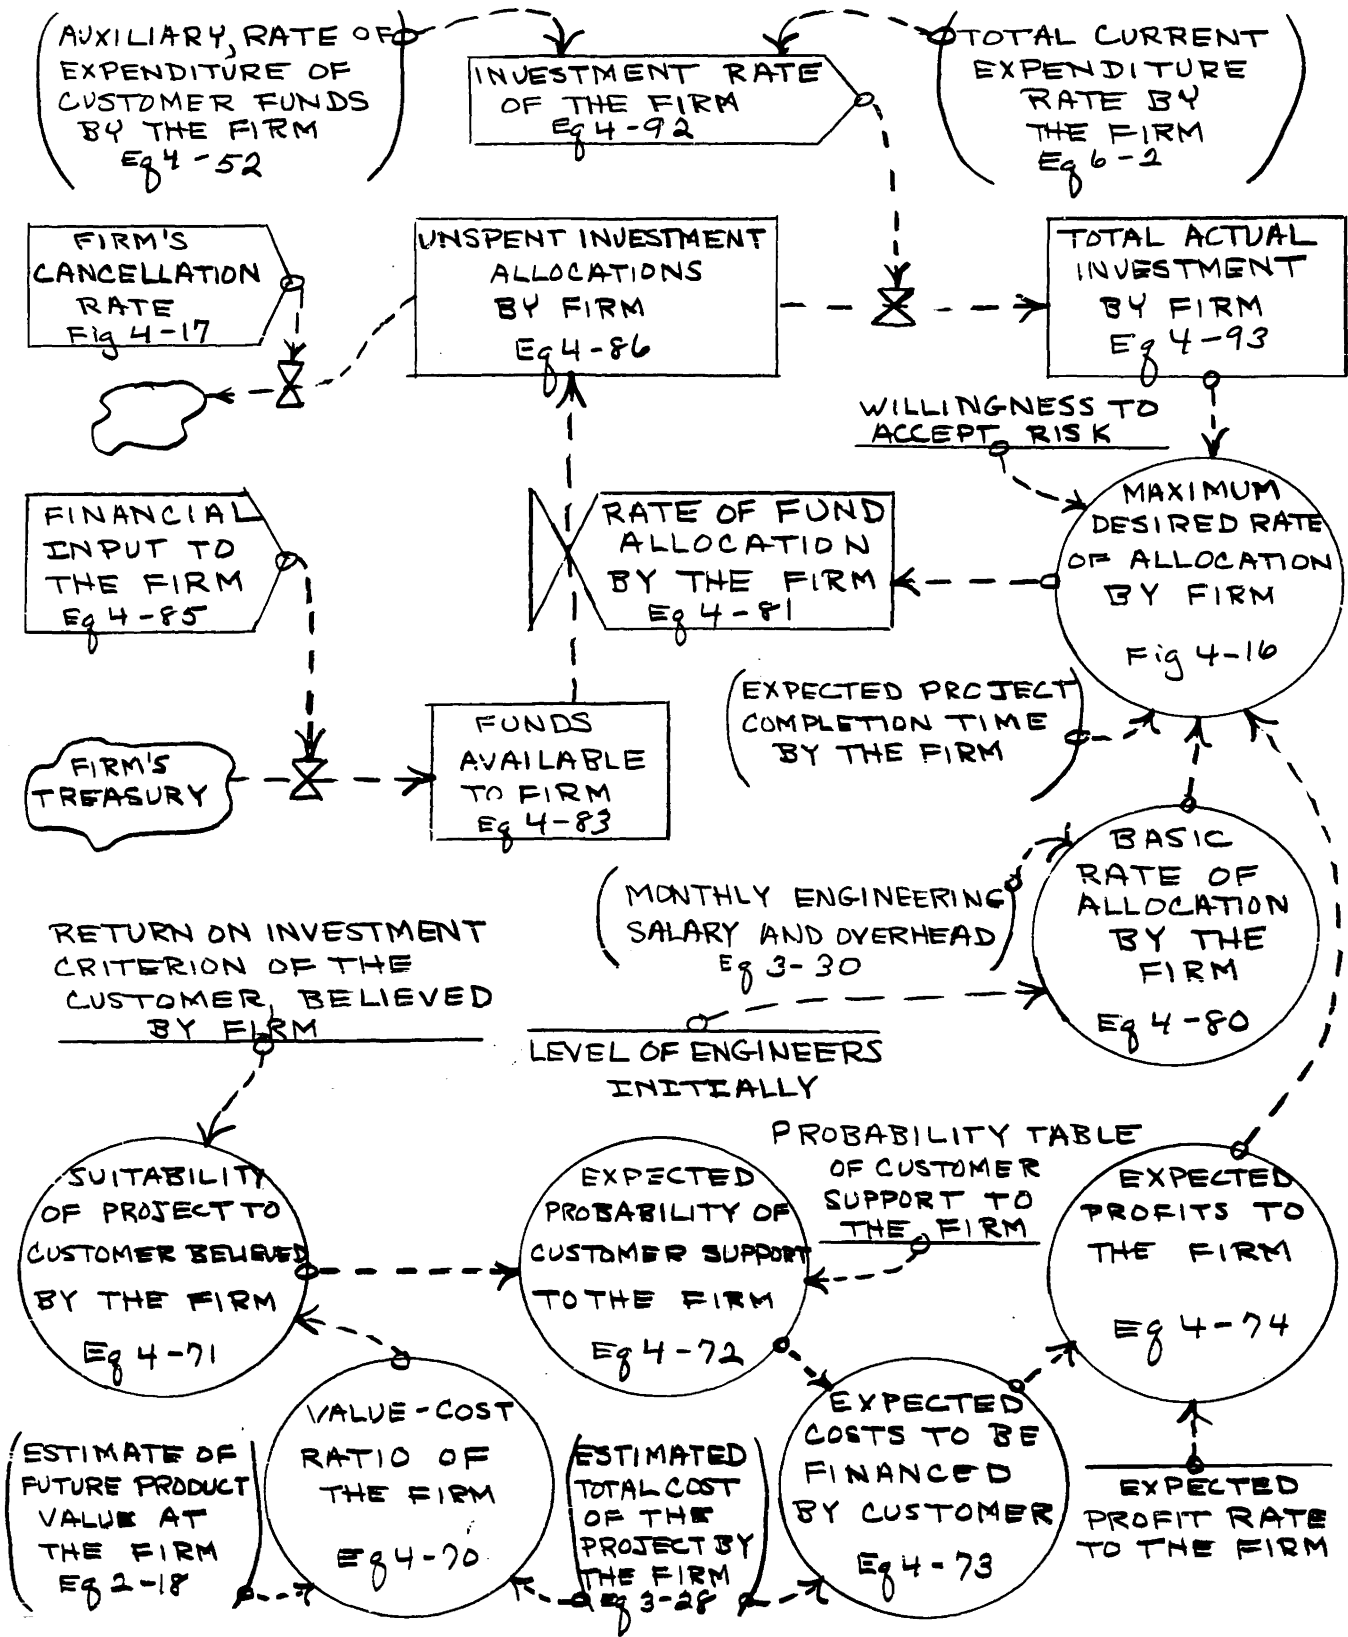 AUXILIARY, RATE OF
EXPENDITURE OF
CUSTOMER FUNDS
BY THE FIRM
Eq 4-52
INVESTMENT RATE
OF THE FIRM
Eq 4-92
TOTAL CURRENT
EXPENDITURE
RATE BY
THE FIRM
Eq 6-2
FIRM'S
CANCELLATION
RATE
Fig 4-17
UNSPENT INVESTMENT
ALLOCATIONS
BY FIRM
Eq 4-86
TOTAL ACTUAL
INVESTMENT
BY FIRM
Eq 4-93
WILLINGNESS TO
ACCEPT RISK
FINANCIAL
INPUT TO
THE FIRM
Eq 4-85
RATE OF FUND
ALLOCATION
BY THE FIRM
Eq 4-81
MAXIMUM
DESIRED RATE
OF ALLOCATION
BY FIRM
Fig 4-16
FIRM'S
TREASURY
FUNDS
AVAILABLE
TO FIRM
Eq 4-83
EXPECTED PROJECT
COMPLETION TIME
BY THE FIRM
BASIC
RATE OF
ALLOCATION
BY THE
FIRM
Eq 4-80
MONTHLY ENGINEERING
SALARY AND OVERHEAD
Eq 3-30
RETURN ON INVESTMENT
CRITERION OF THE
CUSTOMER, BELIEVED
BY FIRM
LEVEL OF ENGINEERS
INITIALLY
SUITABILITY
OF PROJECT TO
CUSTOMER BELIEVED
BY THE FIRM
Eq 4-71
EXPECTED
PROBABILITY OF
CUSTOMER SUPPORT
TO THE FIRM
Eq 4-72
PROBABILITY TABLE
OF CUSTOMER
SUPPORT TO
THE FIRM
EXPECTED
PROFITS TO
THE FIRM
Eq 4-74
ESTIMATE OF
FUTURE PRODUCT
VALUE AT
THE FIRM
Eq 2-18
VALUE-COST
RATIO OF
THE FIRM
Eq 4-70
ESTIMATED
TOTAL COST
OF THE
PROJECT BY
THE FIRM
Eq 3-28
EXPECTED
COSTS TO BE
FINANCED
BY CUSTOMER
Eq 4-73
EXPECTED
PROFIT RATE
TO THE FIRM